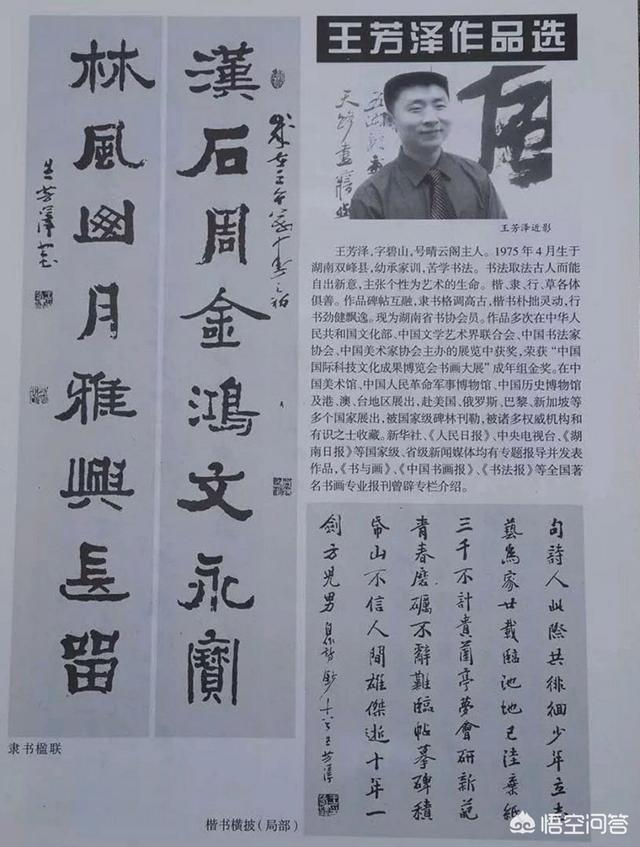 王芳泽作品选
漢石周金鴻文永寶
林風囪月雅興長留
王芳澤
王芳泽近影
王芳泽,字碧山,号晴云阁主人。1975年4月生于
湖南双峰县,幼承家训,苦学书法。书法取法古人而能
自出新意,主张个性为艺术的生命。楷、隶、行、草各体
俱善。作品碑帖互融,隶书格调高古,楷书朴拙灵动,行
书劲健飘逸。现为湖南省书协会员。作品多次在中华人
民共和国文化部、中国文学艺术界联合会、中国书法家
协会、中国美术家协会主办的展览中获奖,荣获“中国
国际科技文化成果博览会书画大展”成年组金奖。在中
国美术馆、中国人民革命军事博物馆、中国历史博物馆
及港、澳、台地区展出,赴美国、俄罗斯、巴黎、新加坡等
多个国家展出,被国家级碑林刊勒,被诸多权威机构和
有识之士收藏。新华社、《人民日报》、中央电视台、《湖
南日报》等国家级、省级新闻媒体均有专题报导并发表
作品,《书与画》、《中国书画报》、《书法报》等全国著
名书画专业报刊曾辟专栏介绍。
句詩人此際共徘徊少年立志
藝為家廿載臨池地已洼棄紙
三千不計貴蘭亭夢會研新範
青春磨礪不辭難臨帖摹碑積
帋山不信人間雄傑逝十年一
劍方児男 王芳澤
隶书楹联
楷书横披(局部)
悟空问答